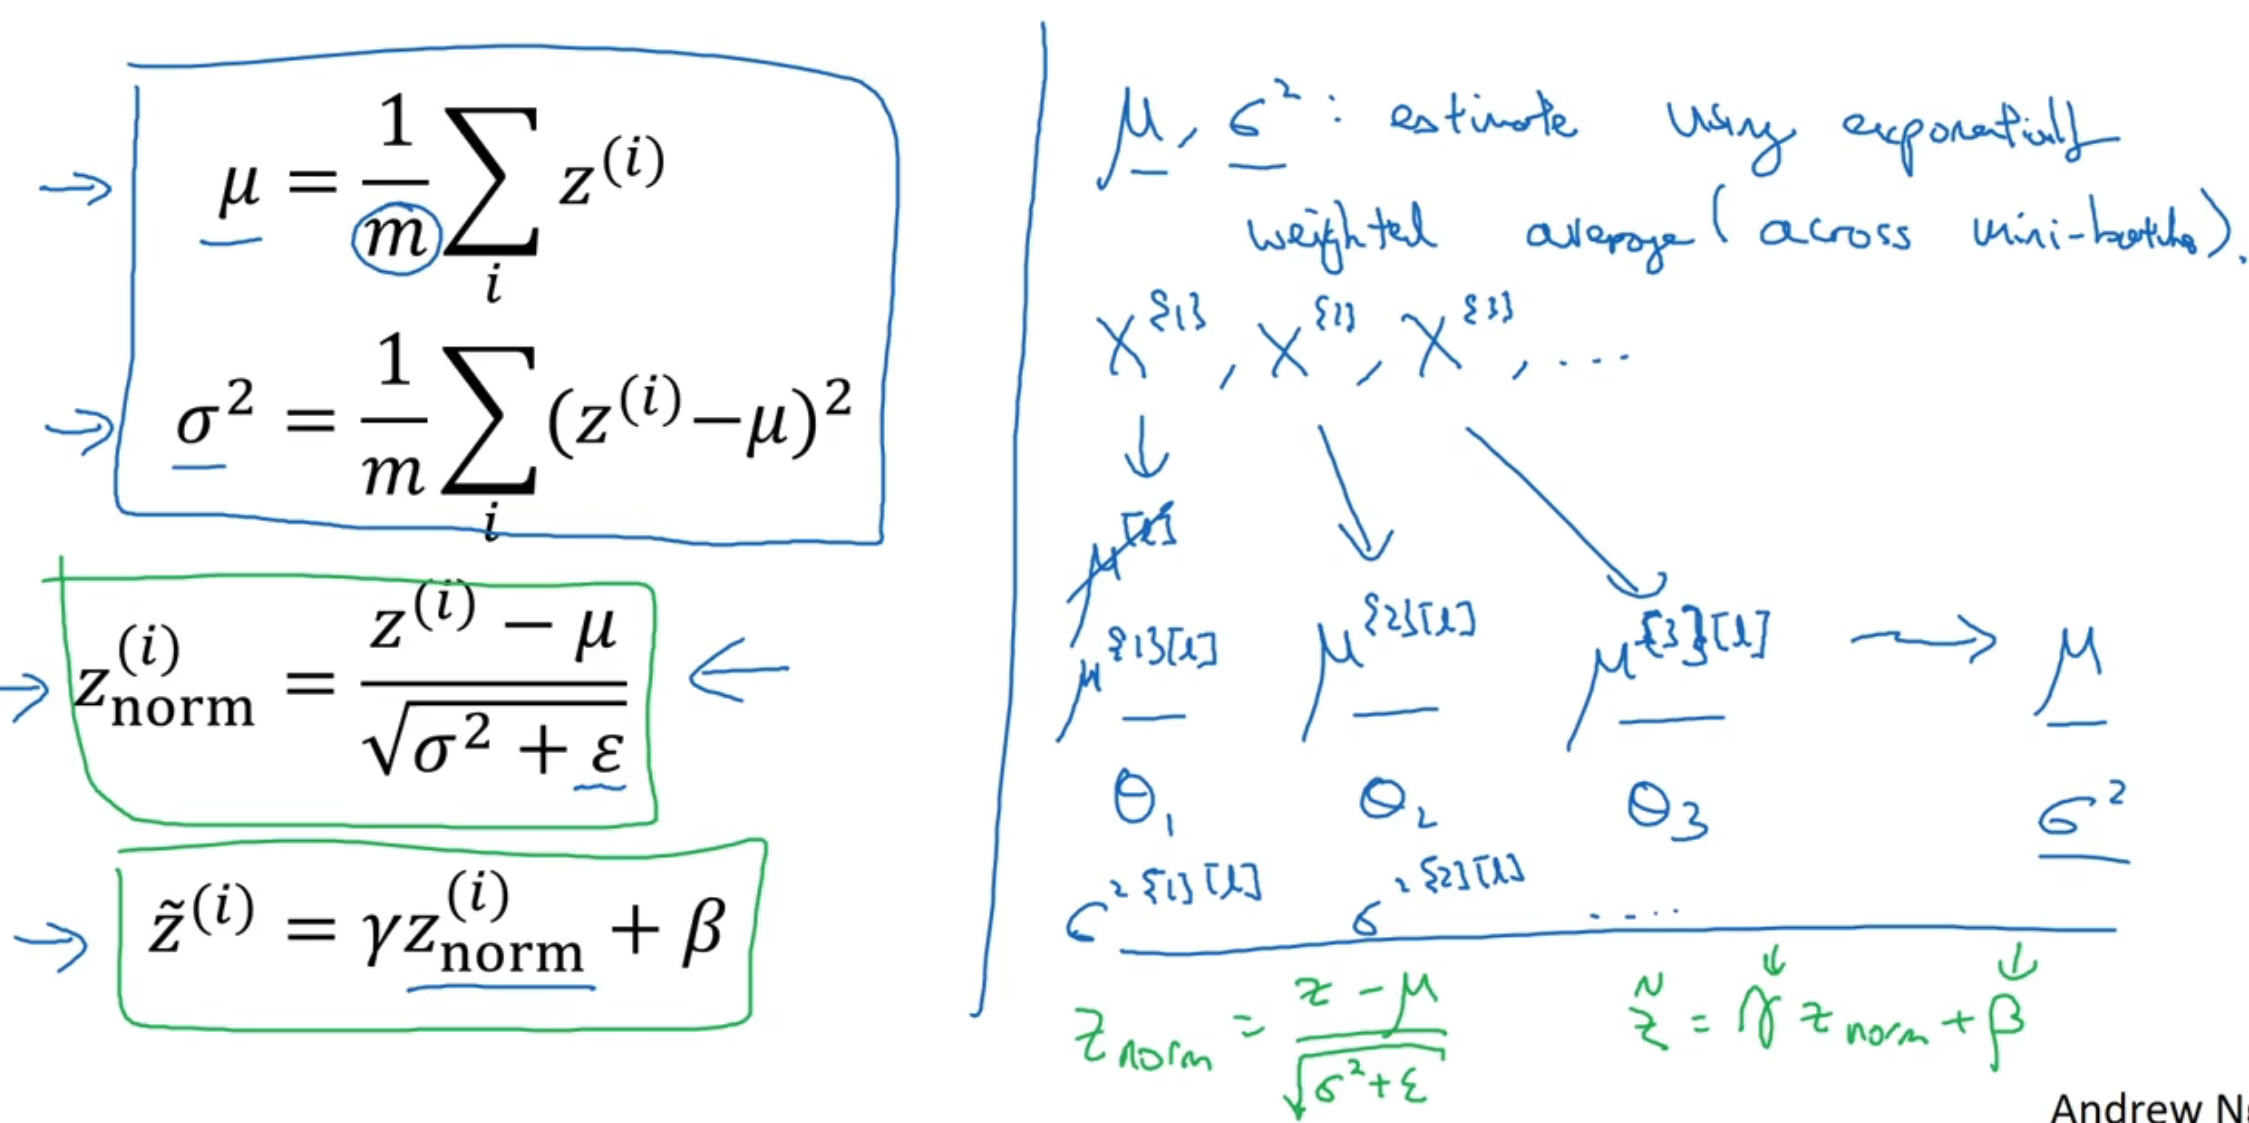 μ = 1/m ∑_i z^(i)
σ² = 1/m ∑_i (z^(i)−μ)²
z_norm^(i) = (z^(i) − μ)/√(σ² + ε)
z̃^(i) = γz_norm^(i) + β
μ, σ² : estimate using exponentially
weighted average (across mini-batches).
X^{1}, X^{2}, X^{3}, ....
μ^[l]
μ^{1}[l] μ^{2}[l] μ^{3}[l] → μ
θ₁ θ₂ θ₃ σ²
σ²^{1}[l] σ²^{2}[l] .....
z_norm = (z − μ)/√(σ²+ε) z̃ = γ z_norm + β
Andrew